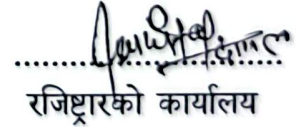 रजिष्ट्रारको कार्यालय